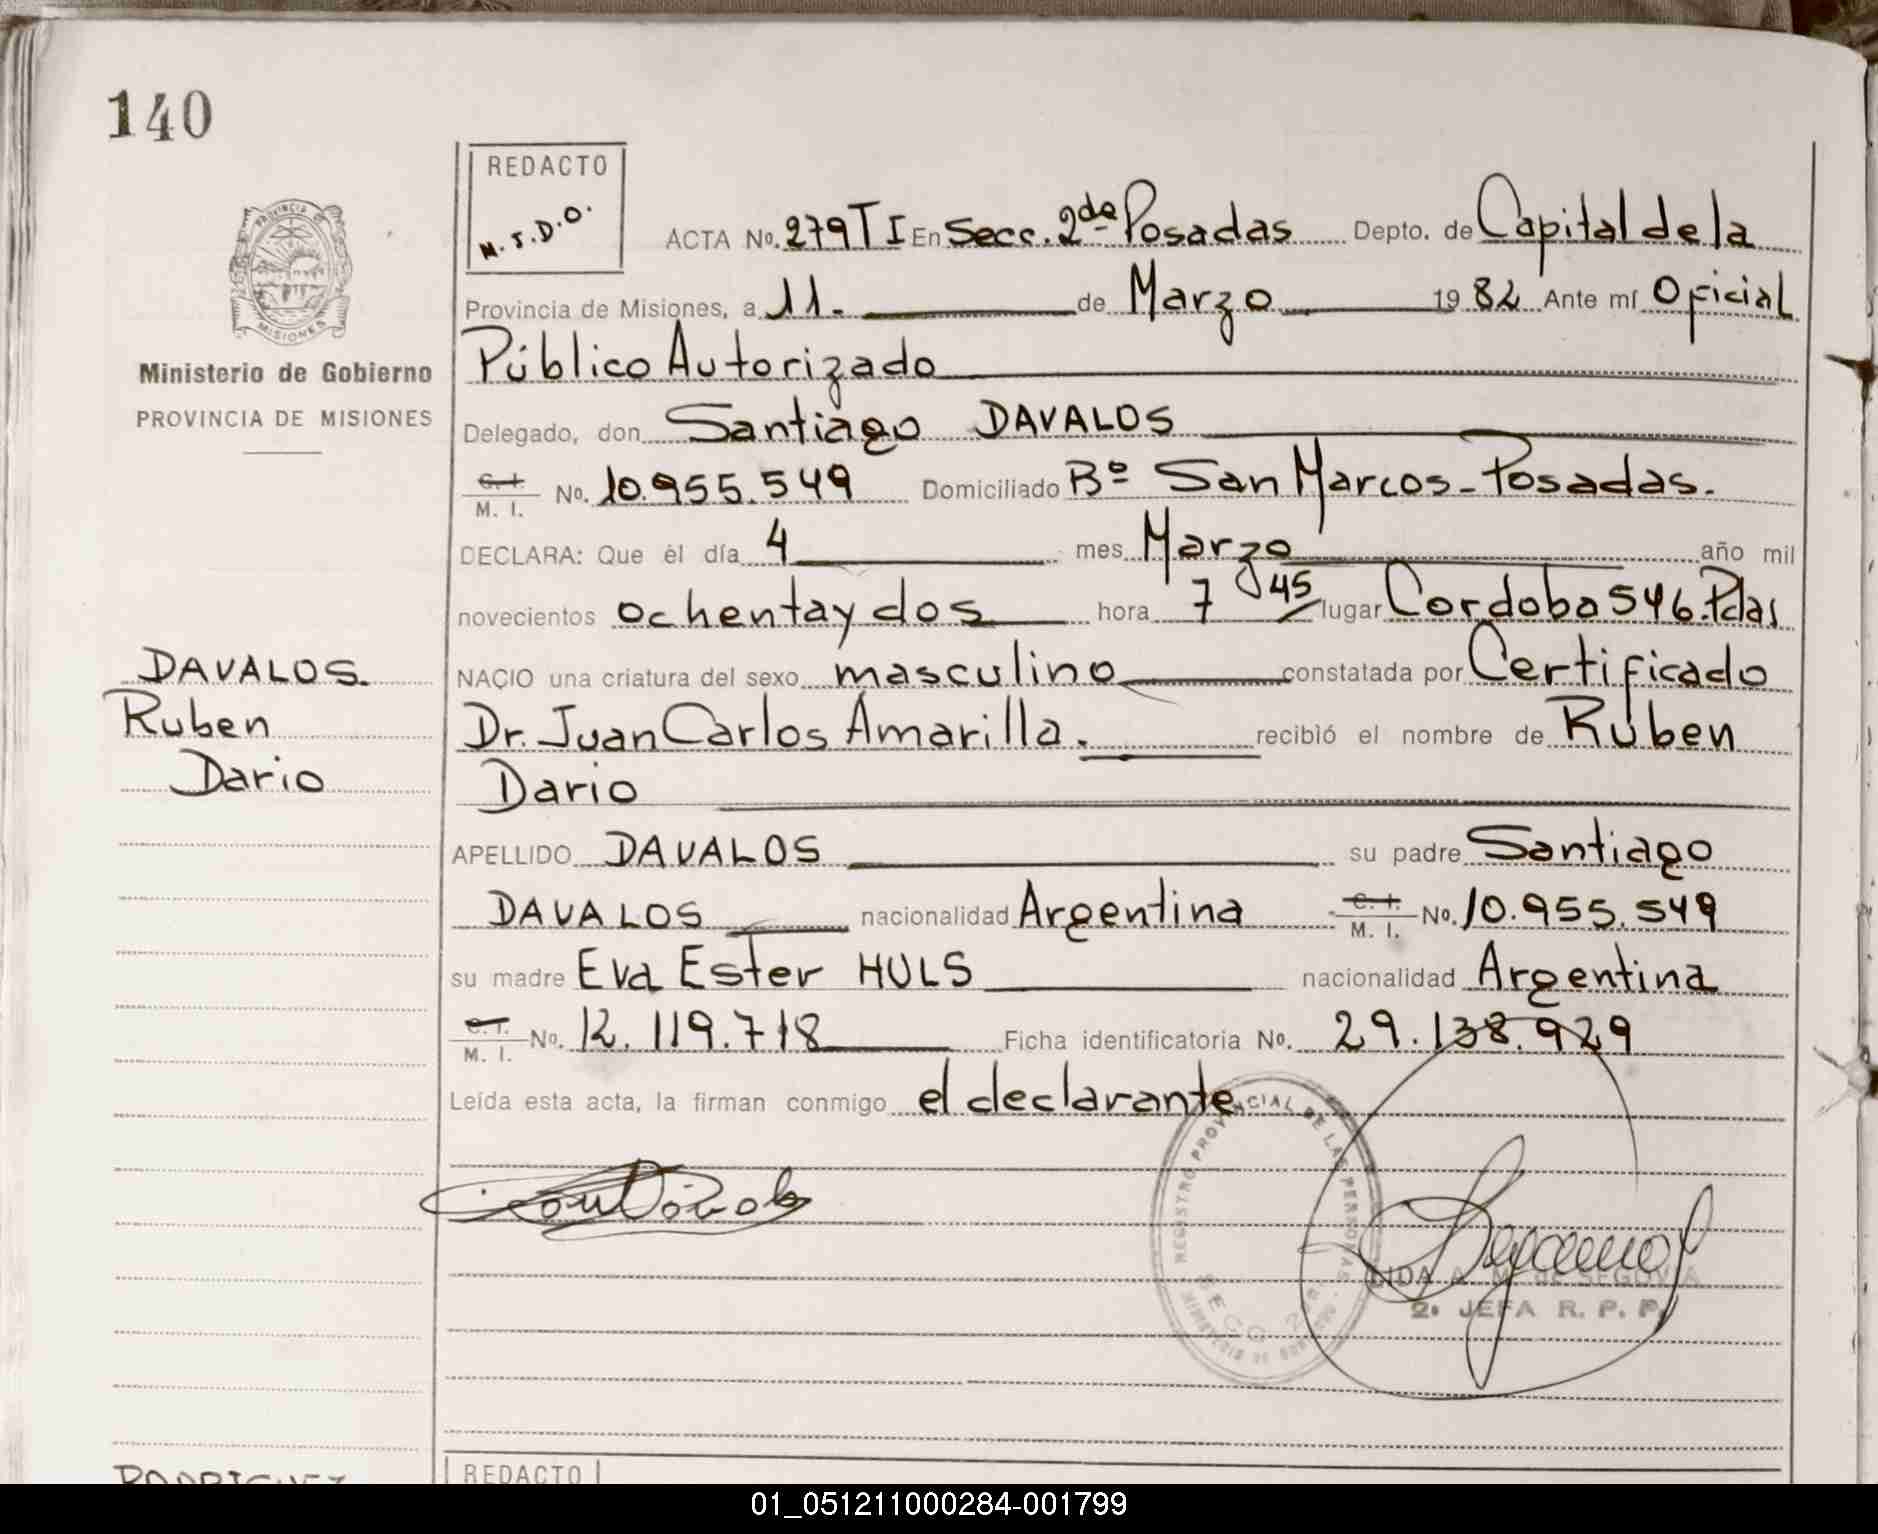 140
REDACTO
M.J.D.O.
PROVINCIA DE MISIONES
Ministerio de Gobierno
PROVINCIA DE MISIONES
ACTA No. 279 T I En Secc. 2da Posadas Depto. de Capital de la
Provincia de Misiones, a 11. de Marzo 1982 Ante mí Oficial
Público Autorizado
Delegado, don Santiago DAVALOS
C. I. M. I. No. 10.955.549 Domiciliado Bº San Marcos - Posadas.
DECLARA: Que él día 4 mes Marzo año mil
novecientos ochenta y dos hora 7 45 lugar Cordoba 546. Pdas
NACIO una criatura del sexo masculino constatada por Certificado
Dr. Juan Carlos Amarilla. recibió el nombre de Ruben
Dario
DAVALOS.
Ruben
Dario
APELLIDO DAVALOS su padre Santiago
DAVALOS nacionalidad Argentina C. I. M. I. No. 10.955.549
su madre Eva Ester HULS nacionalidad Argentina
C. I. M. I. No. 12.119.718 Ficha identificatoria No. 29.138.929
Leída esta acta, la firman conmigo el declarante
REGISTRO PROVINCIAL DE LAS PERSONAS
SECC. 2
MINISTERIO DE GOBIERNO
LIDA A. M. de SEGOVIA
2. JEFA R. P. P.
RODRIGUEZ
REDACTO
01_051211000284-001799